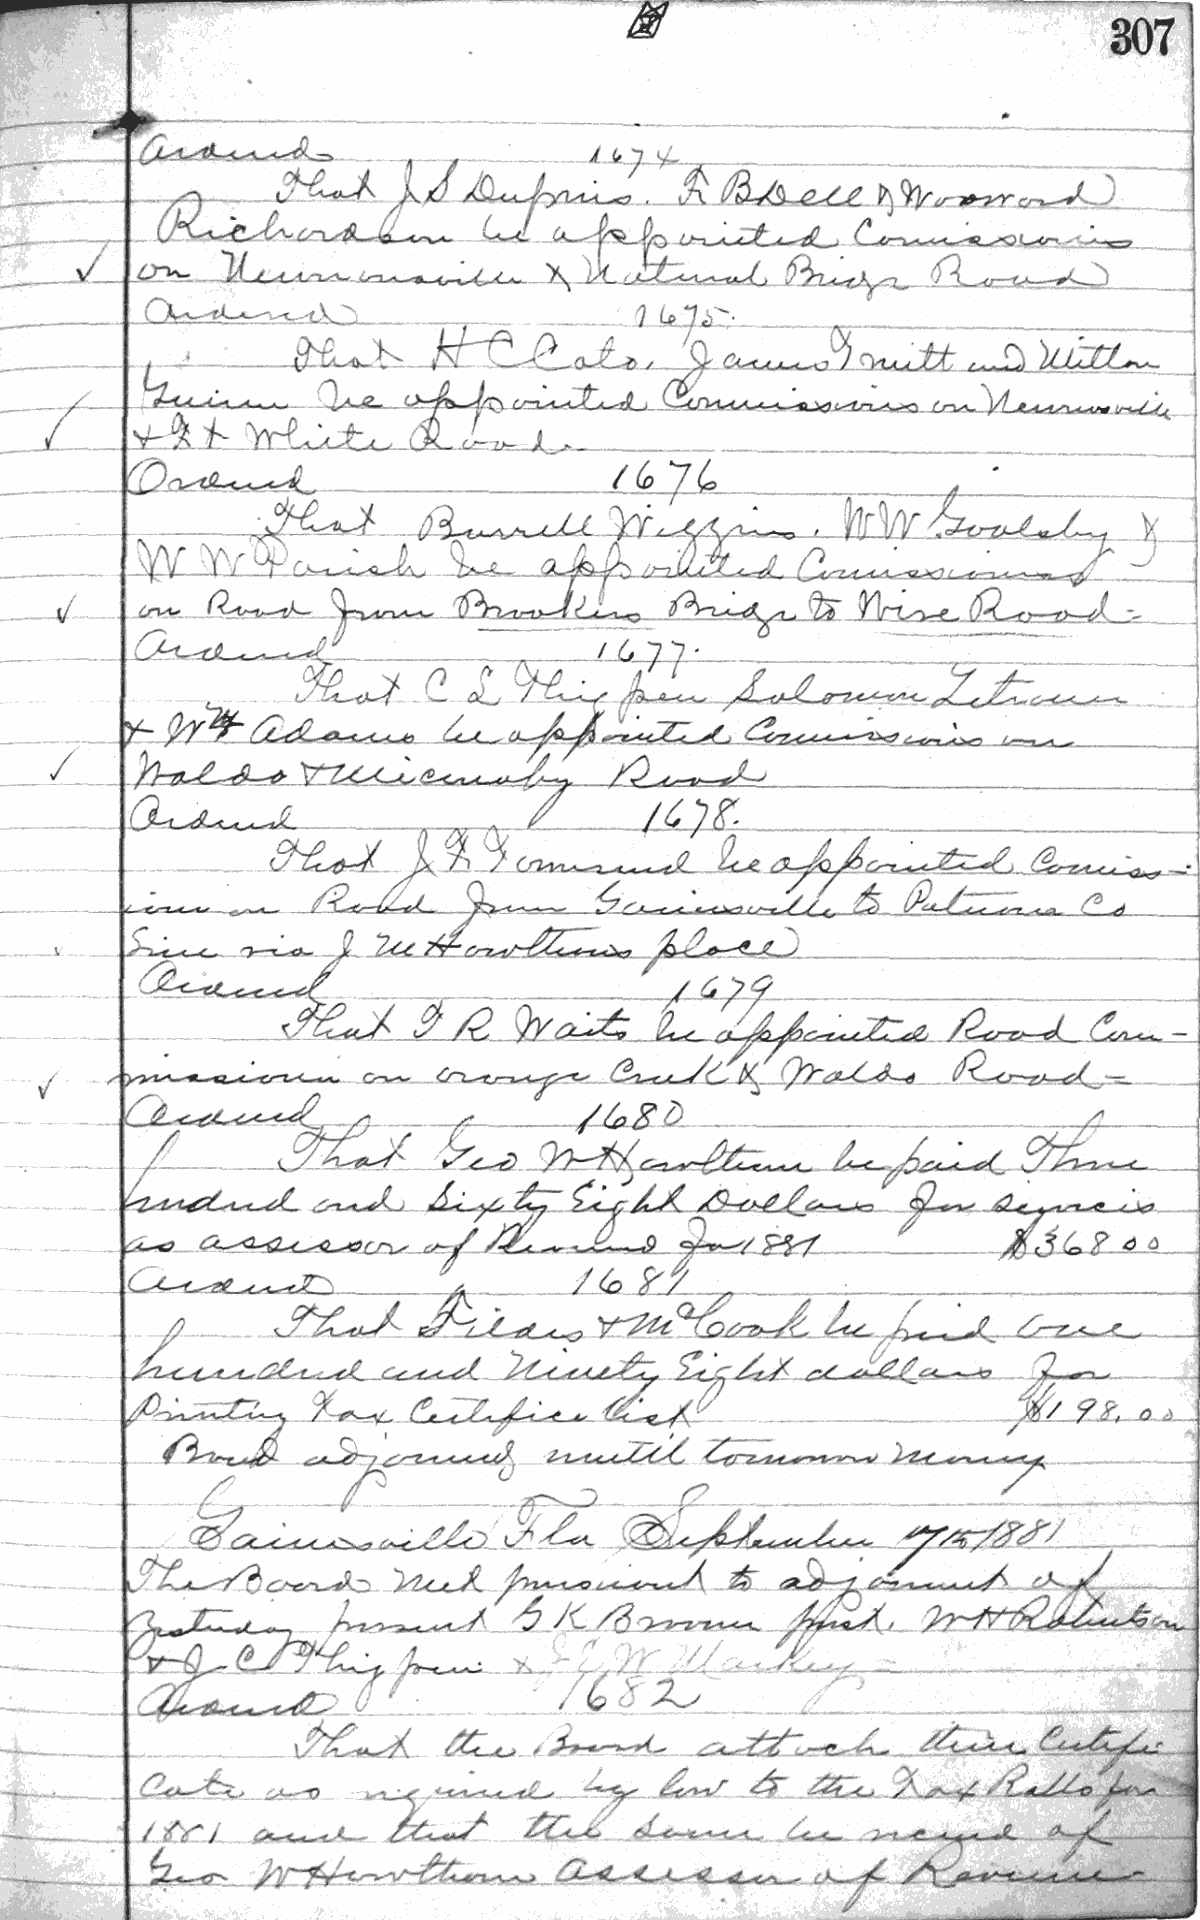 307
Ordered 1674
That J S Dupries. F B Dell & Woodward
Richardson be appointed Comissioners
on Newnansville & Natural Bridge Road
Ordered 1675.
That H C Cato, James and Milton
Guinn be appointed Commissioners on Newnansville
& White Road
Ordered 1676
That Burrell Wiggins. W W Goolsby &
W W Parish be appointed Comissioners
on Road from Brookers Bridge to Wire Road
Ordered 1677.
That C L Thigpen Solomon
& Wm Adams be appointed Commissioners on
Waldo & Micanopy Road
Ordered 1678.
That J F Townsend be appointed Comiss-
ioner on Road from Gainesville to Putnam Co
Line via J M Hawthorns place
Ordered 1679
That T R Waits be appointed Road Com-
missioner on orange Creek & Waldo Road
Ordered 1680
That Geo W Hawthorn be paid Three
hundred and Sixty Eight Dollars for services
as assessor of Revenue for 1881 $368 00
Ordered 1681
That Fildes & McCook be paid One
hundred and Ninety Eight dollars for
Printing Tax Certificate list $198.00
Board adjourned until tomorrow morning
Gainesville Fla September 1881
The Board met pursuant to adjournment of
yesterday present G K Broome prest. W H Robertson
& J C Thigpen & W Markey
Ordered 1682
That the Board attach their Certifi
cate as required by law to the Tax Rolls for
1881 and that the same be received of
Geo W Hawthorn Assessor of Revenue